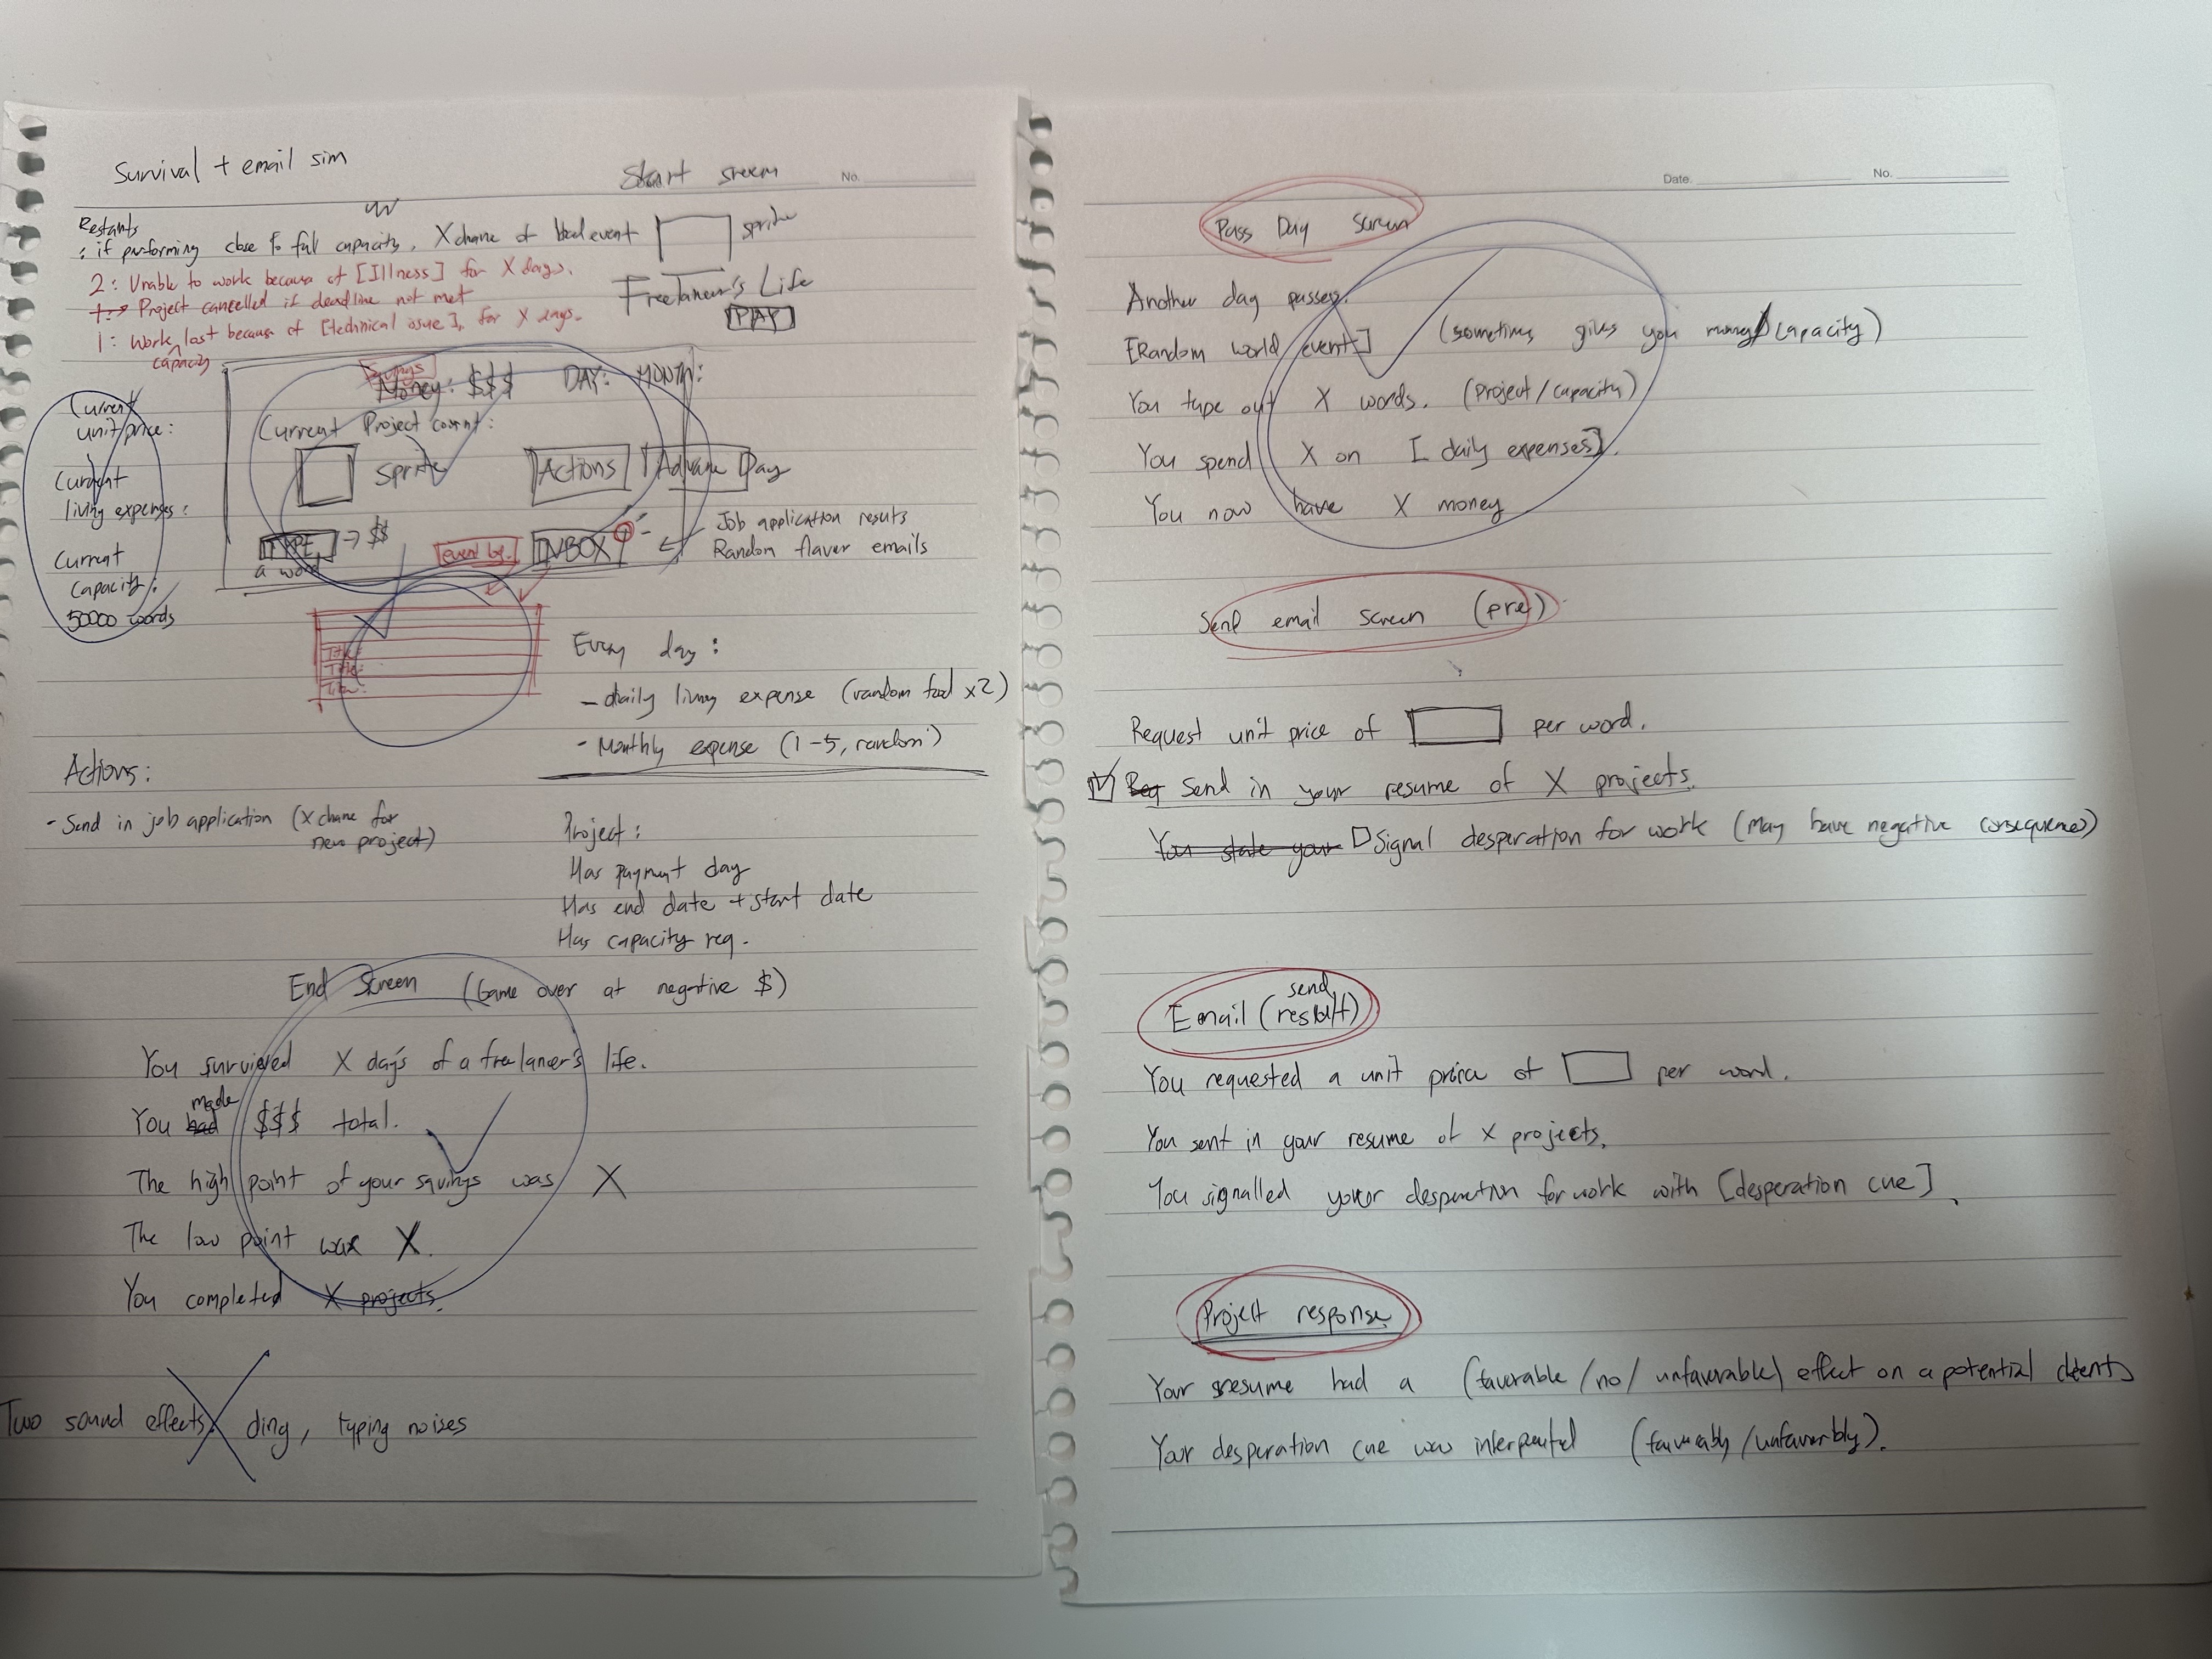 Survival + email sim
Start screen
No.
Restarts
, if performing close to full capacity, X chance of bad event
sprite
2: Unable to work because of [Illness] for X days.
1: → Project cancelled if deadline not met
1: Work capacity lost because of [technical issue], for X days.
Freelancer's Life
PLAY
Current unit price:
Current living expenses:
Current capacity:
50000 words
Money: $$$
DAY:
MONTH:
Current Project count:
Sprite
Actions
Advance Day
TYPE
a word
→ $$
event log
INBOX
Job application results
Random flavor emails
Title
Title
Title
Every day:
- daily living expense (random food x2)
- Monthly expense (1-5, random)
Actions:
- Send in job application (X chance for new project)
Project:
Has payment day
Has end date + start date
Has capacity req.
End Screen (Game over at negative $)
You survived X days of a freelancer's life.
You had made $$$ total.
The high point of your savings was X
The low point was X.
You completed X projects.
Two sound effects, ding, typing noises
Date.
No.
Pass Day screen
Another day passes.
[Random world event] (sometimes gives you money/capacity)
You type out X words. (project/capacity)
You spend X on [daily expenses].
You now have X money
Send email screen (pre)
Request unit price of per word.
Req Send in your resume of X projects.
You state your Signal desperation for work (May have negative consequences)
Email (send result)
You requested a unit price of per word.
You sent in your resume of X projects.
You signalled your desperation for work with [desperation cue].
Project response
Your resume had a (favorable/no/unfavorable) effect on a potential client
Your desperation cue was interpreted (favorably/unfavorably).